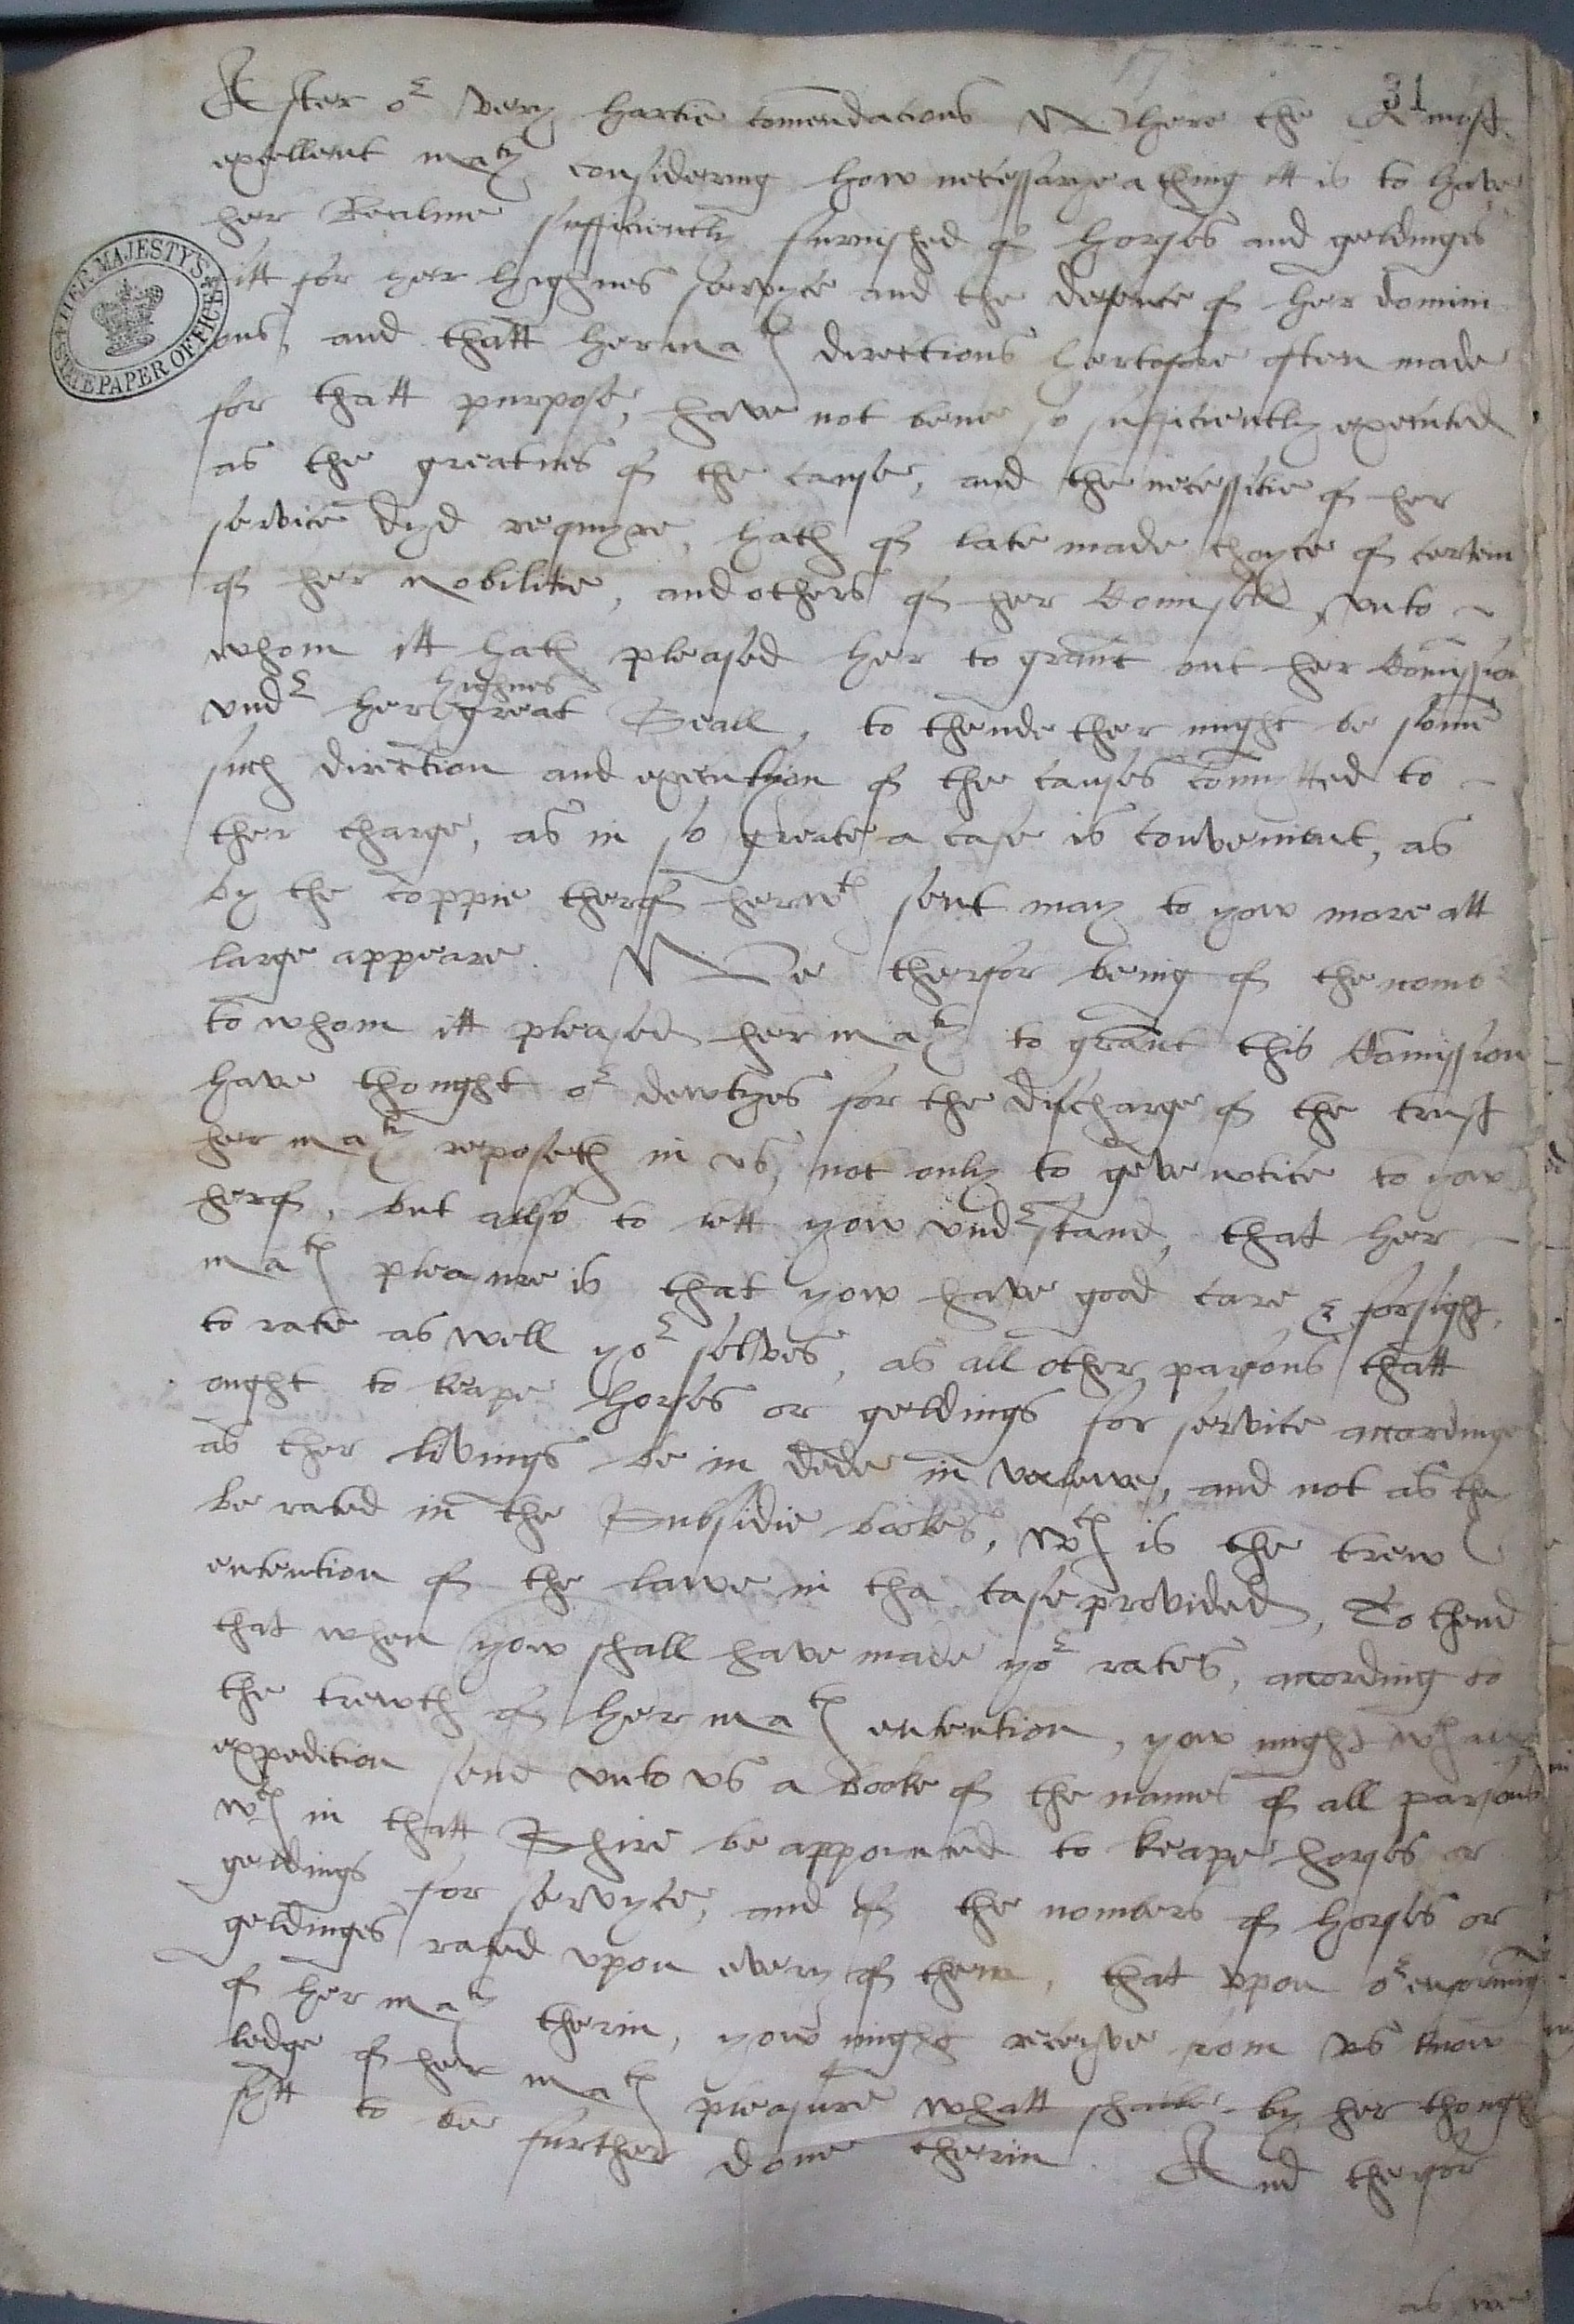 31
After or very hartie comendacions Where the Q most
excellent matie considering how necessarye a thing itt is to have
her Realme sufficiently furnished of horses and geldinges
fitt for her highnes servyce and the defence of her domini
ons, and thatt her maties directions hertofore often made
for thatt purpose, have not bene so sufficiently executed
as the greatnes of the cause, and the necessitie of her
service dyd requyre, hath of late made choyce of certein
of her nobilitie, and others of her Counsell, vnto
whom itt hath pleased her to graunt out her Comission
highnes
vndr her great Seall, to thende ther might be some
such direction and execution of the causes comytted to
ther charge, as in so greate a case is convenient, as
by the coppie therof herwth sent may to yow more att
large appeare. We therfor being of the nomb
to whom itt pleased her matie to graunt this Comission
have thought or dewtyes for the discharge of the trust
her matie reposeth in vs, not only to geve notice to yow
herof, but allso to lett yow vndrstand, that her
maties pleasure is that yow have good care & forsight,
to rate as well yor selves, as all other parsons thatt
ought to keape horses or geldings for service accordinge
as ther livings be in dede in valewe, and not as the
be rated in the Subsidie bookes, wch is the trew
entention of the lawe in tha case provided, To thend
that when yow shall have made yor rates, acording to
the trewth of her maties entention, yow might wth
expedition send vnto vs a booke of the names of all parsons
wch in thatt Shire be appointed to keape horses or
geldings for servyce, and of the nombers of horses or
geldinges rated vpon every of them, that vpon or enforming
of her matie therin, yow might receyve from vs know
ledge of her maties pleasure whatt shalbe by her though
fytt to be further done therin. And therfor
as we
HER MAJESTY'S STATE PAPER OFFICE